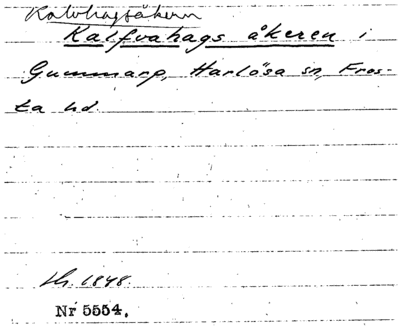 Kalvhagsåkern
Kalfvahags åkeren i
Gummarp, Harlösa sn, Fros-
ta hd
Lh. 1848.
Nr 5554.